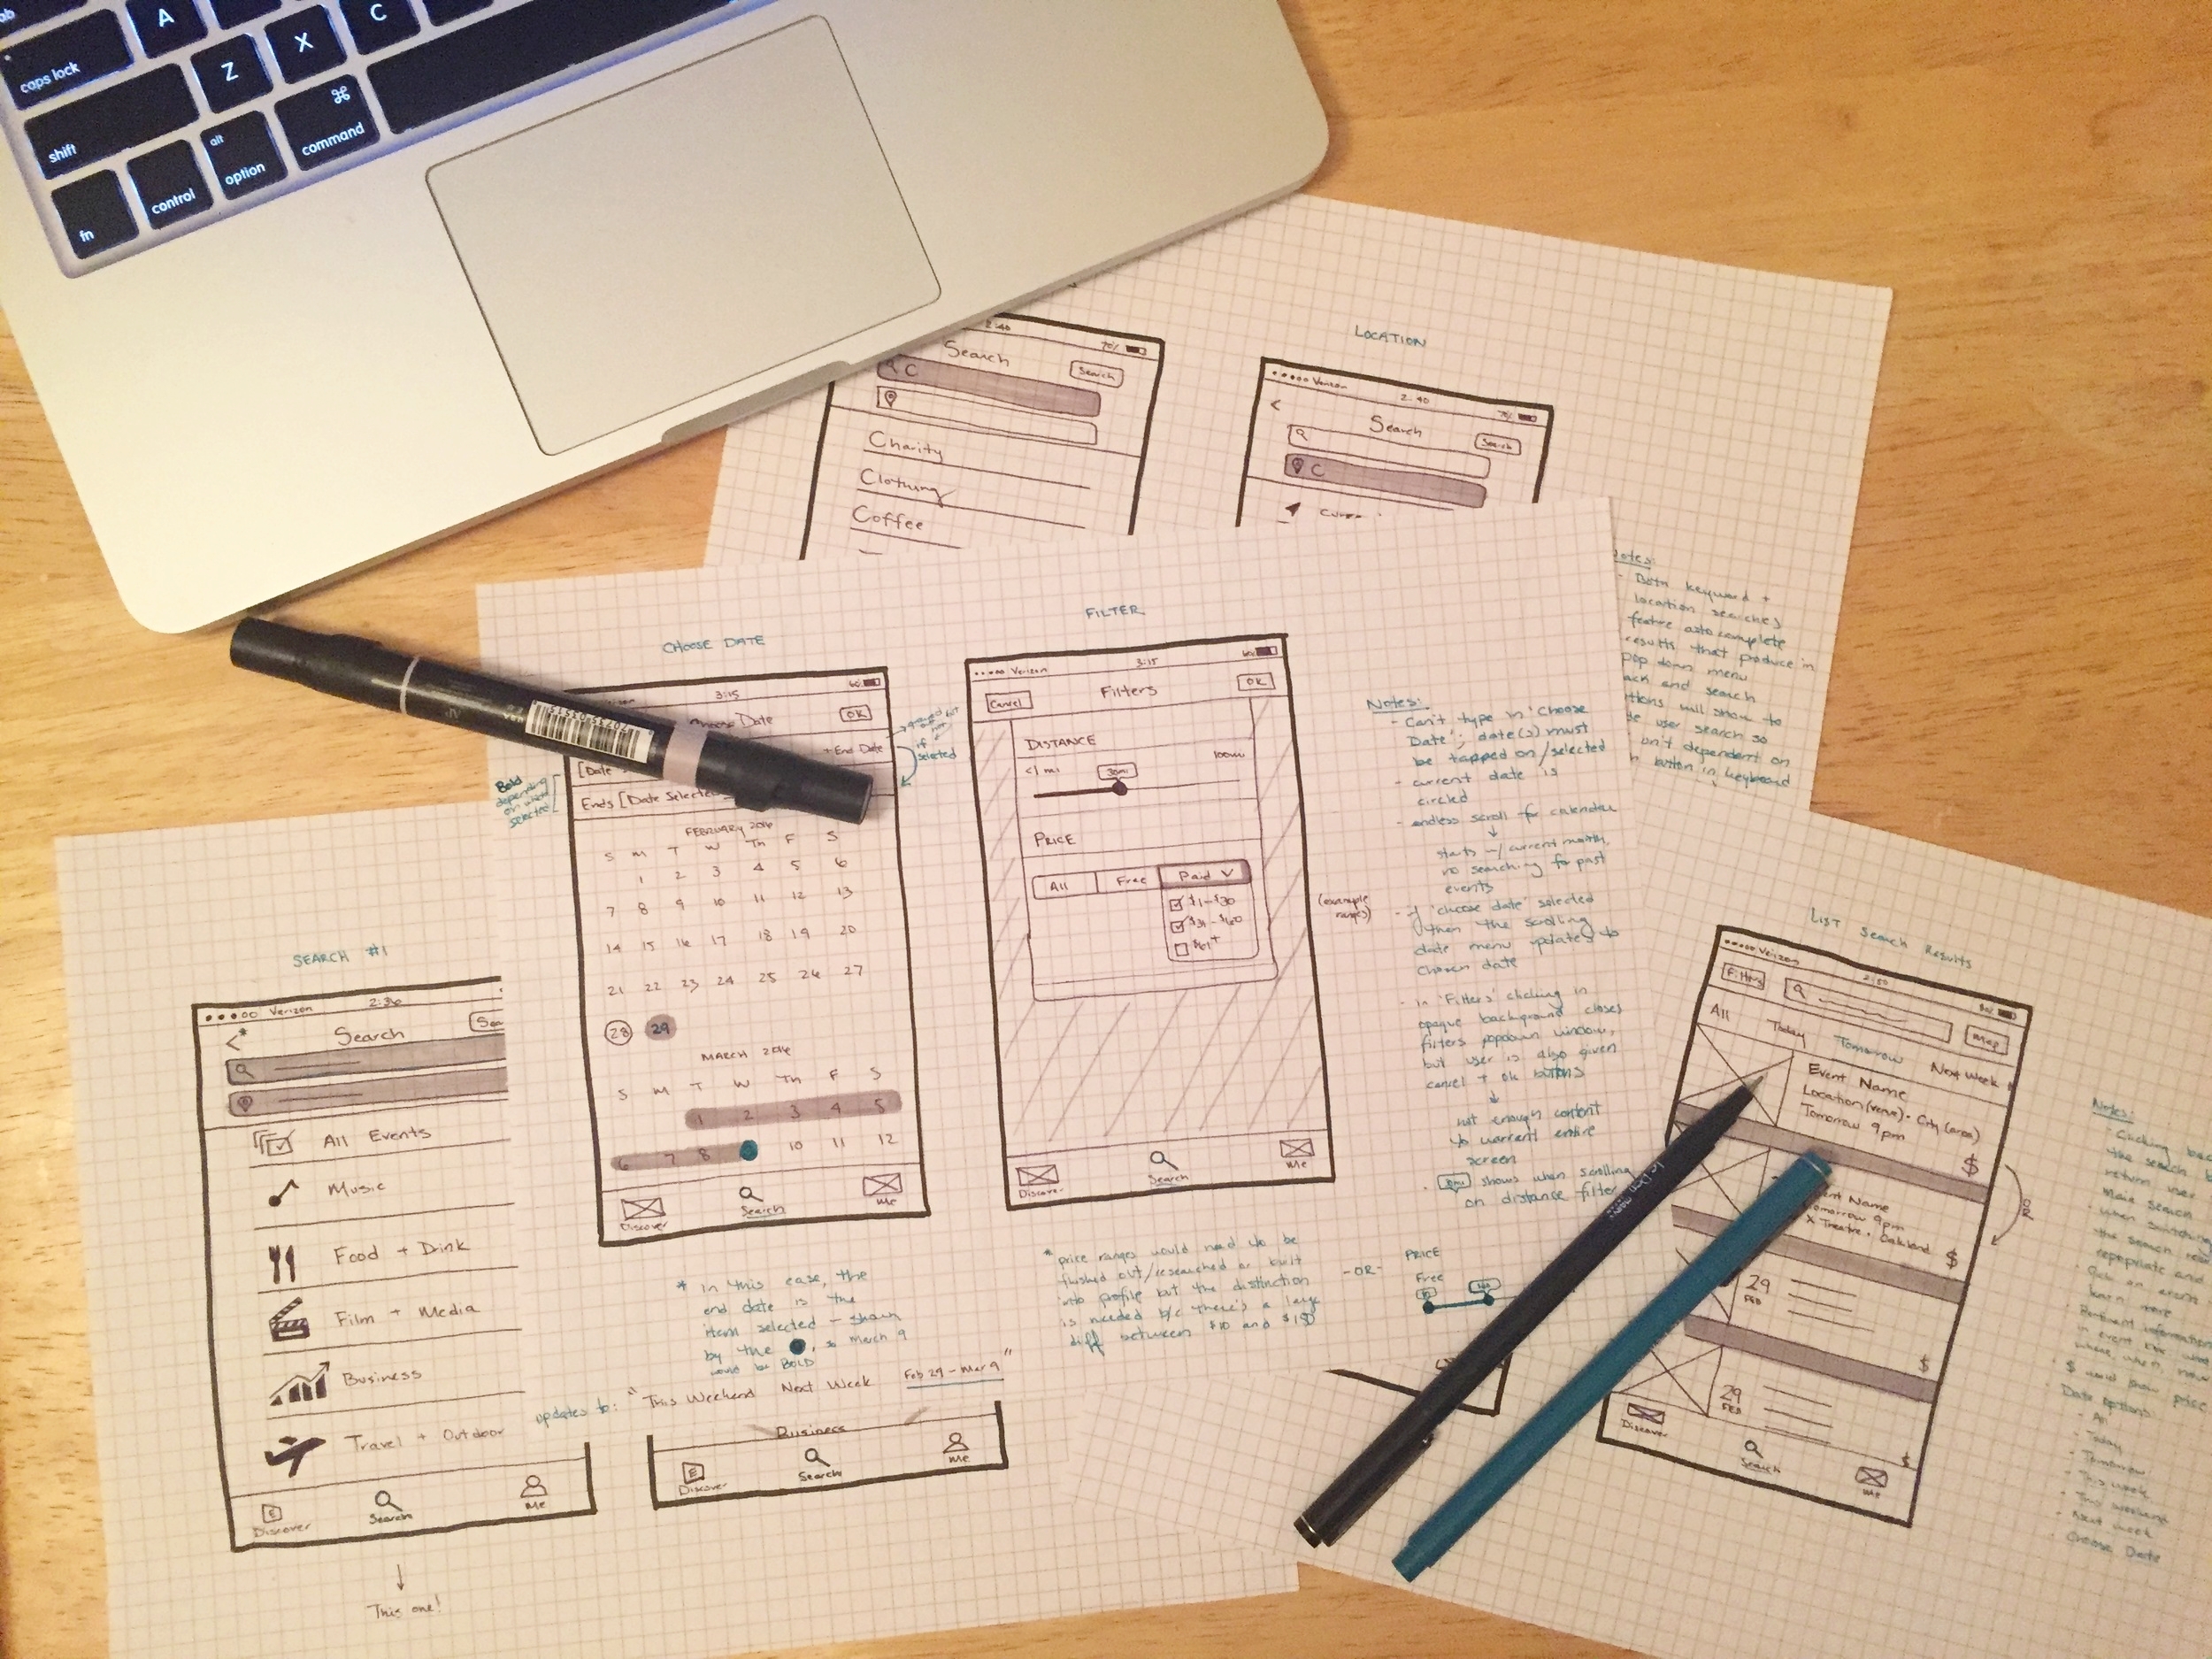 A
C
caps lock
Z
X
⌘
shift
alt
command
option
control
fn
2:40
70%
Search
Search
C
Charity
Clothing
Coffee
LOCATION
Verizon
2:40
70%
<
Search
Search
C
Notes:
- Both keyword +
location searches
feature autocomplete
results that produce in
pop down menu
back and search
will show to
user search so
isn't dependent on
button in keyboard
CHOOSE DATE
3:15
60%
Date
OK
+ End Date
if
selected
[Date
Ends [Date Selected
Bold
depending
on what
selected
FEBRUARY 2016
S M T W Th F S
1 2 3 4 5 6
7 8 9 10 11 12 13
14 15 16 17 18 19 20
21 22 23 24 25 26 27
28 29
MARCH 2016
S M T W Th F S
1 2 3 4 5
6 7 8 10 11 12
Discover
Search
Me
* in this case, the
end date is the
item selected - shown
by the , so March 9
would be BOLD
updates to: "This Weekend Next Week Feb 29 - Mar 9"
FILTER
Verizon
3:15
60%
Cancel
Filters
OK
DISTANCE
<1 mi
30mi
100mi
PRICE
All
Free
Paid
$1-$30
$31-$60
$61+
(example
ranges)
Discover
Search
Me
* price ranges would need to be
fleshed out/researched or built
into profile but the distinction
is needed b/c there's a large
diff between $10 and $150
-OR-
PRICE
Free
Notes:
- Can't type in 'Choose
Date'; date(s) must
be tapped on/selected
- current date is
circled
- endless scroll for calendar
starts w/current month,
no searching for past
events
- if 'choose date' selected
then the scrolling
date menu updates to
chosen date
- in 'Filters' clicking in
opaque background closes
filters popdown window,
but user is also given
cancel + ok buttons
not enough content
to warrant entire
screen
30mi shows when scrolling
on distance filter
SEARCH #1
Verizon
2:36
<*
Search
All Events
Music
Food + Drink
Film + Media
Business
Travel + Outdoor
Discover
Search
Me
This one!
Business
Discover
Search
Me
LIST Search Results
Verizon
2:50
Filters
Map
All
Today
Tomorrow
Next Week
Event Name
Location (venue) · City (area)
Tomorrow 9pm
$
OR
Event Name
Tomorrow 9pm
X Theatre · Oakland
$
29
FEB
$
29
FEB
$
Discover
Search
Me
Notes:
- Clicking
the search
return user
Main search
- When switching
the search
repopulate and
learn more
- Pertinent information
in event
where, when, how
- $ would show price
Date options:
- All
- Today
- Tomorrow
- This week
- This weekend
- Next week
- Choose Date